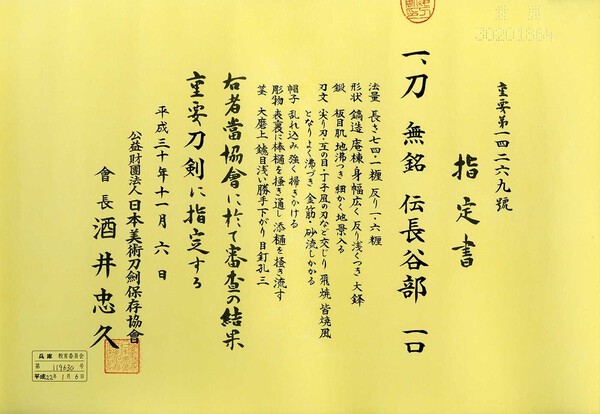 重要第一四二六九號
指定書
一、刀 無銘 伝長谷部 一口
法量 長さ七四・一糎 反り一・六糎
形状 鎬造 庵棟 身幅広く 反り浅くつき 大鋒
鍛 板目肌 地沸つき 細かく地景入る
刃文 尖り刃・互の目・丁子風の刃など交じり 飛焼 皆焼風
となりよく沸づき 金筋・砂流しかかる
帽子 乱れ込み 強く掃きかける
彫物 表裏に棒樋を掻き通し 添樋を掻き流す
茎 大磨上 鑢目浅い勝手下がり 目釘孔三
右者當協會に於て審査の結果
重要刀剣に指定する
平成三十年十一月六日
公益財團法人日本美術刀劍保存協會
會長 酒井忠久
30201864
兵庫 教育委員会
第 119630 号
平成22年1月6日